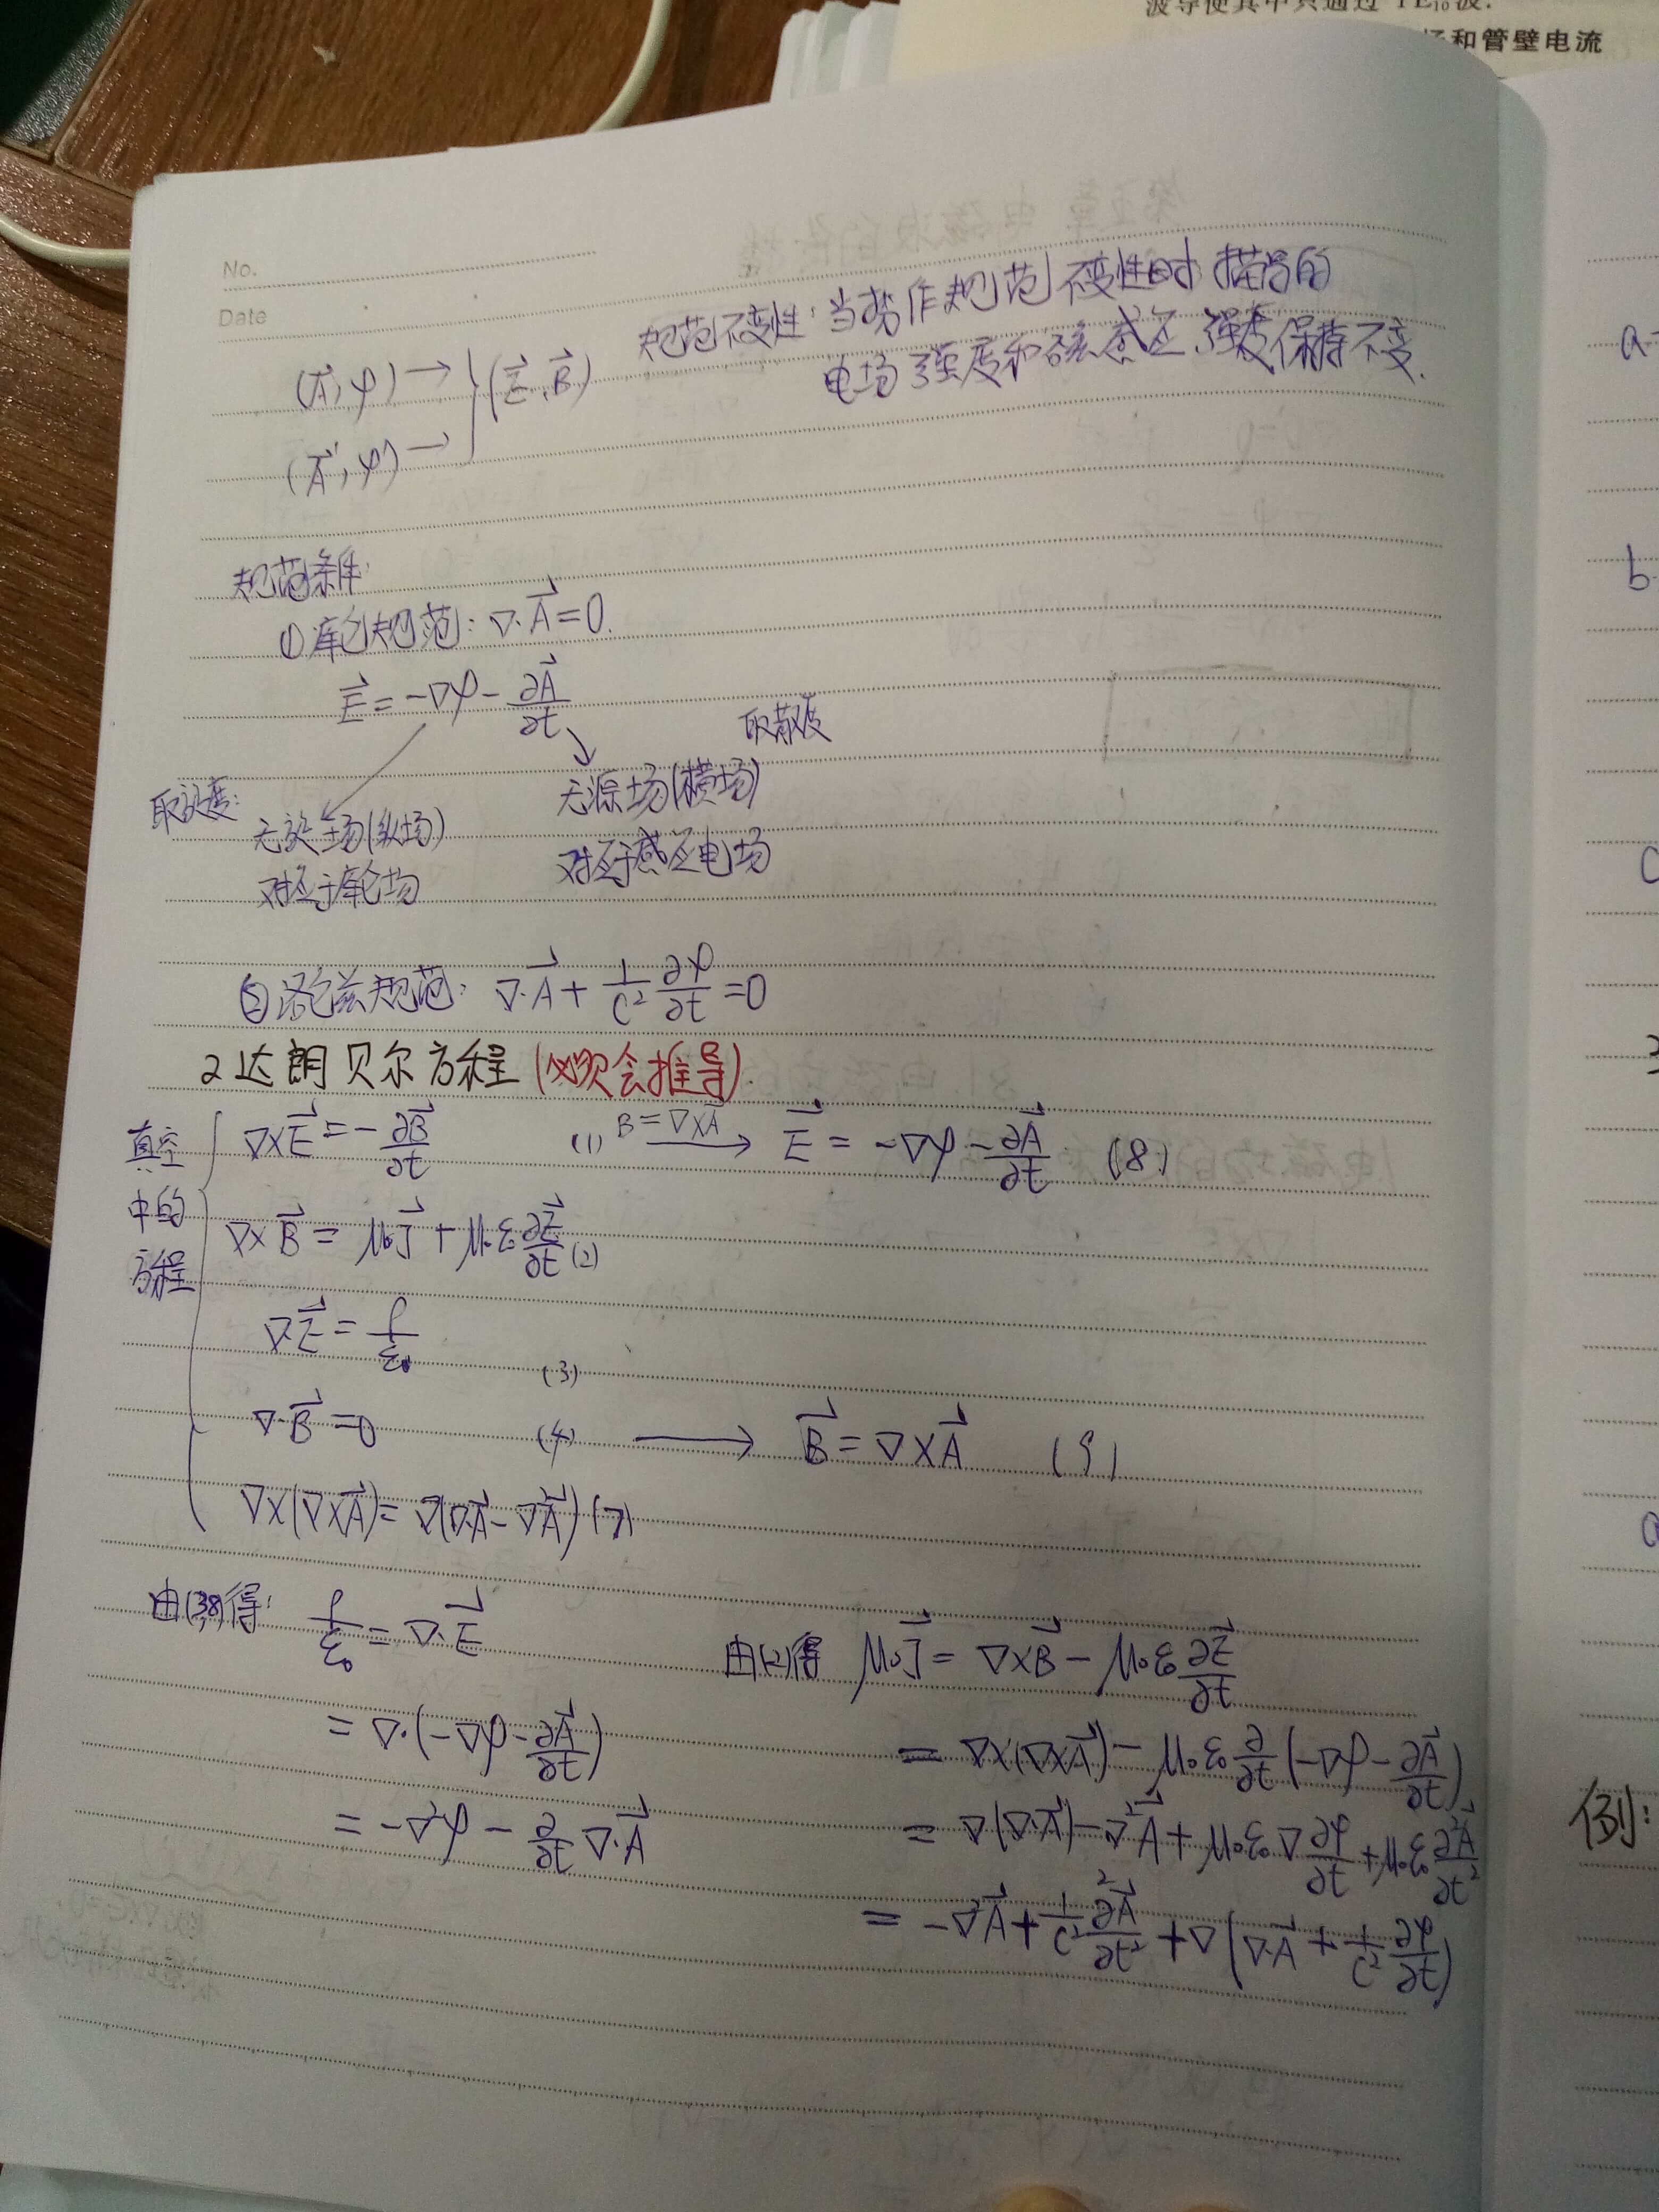 波导使其中只通过 TE₁₀波.
场和管壁电流
No.
Date
规范不变性:当势作规范不变性时 描写的
电场强度和磁感应强度保持不变.
(A⃗,φ) →
(E⃗,B⃗)
(A⃗',φ') →
规范条件:
①库伦规范: ∇·A⃗=0.
E⃗=-∇φ-∂A⃗/∂t
取散度
取旋度:
无源场(横场)
无旋场(纵场)
对应于感应电场
对应于库伦场
②洛仑兹规范: ∇·A⃗+1/c² ∂φ/∂t=0
2 达朗贝尔方程(必须会推导).
真空中的方程
∇×E⃗=-∂B⃗/∂t (1) B=∇×A⃗ → E⃗=-∇φ-∂A⃗/∂t (8)
∇×B⃗=μ₀J⃗+μ₀ε₀∂E⃗/∂t (2)
∇·E⃗=ρ/ε₀ (3)
∇·B⃗=0 (4) → B⃗=∇×A⃗ (9)
∇×(∇×A⃗)=∇(∇·A⃗-∇²A⃗) (7)
由(3,8)得: ρ/ε₀=∇·E⃗
=∇·(-∇φ-∂A⃗/∂t)
=-∇²φ-∂/∂t ∇·A⃗
由(2)得 μ₀J⃗=∇×B⃗-μ₀ε₀∂E⃗/∂t
=∇×(∇×A⃗)-μ₀ε₀∂/∂t(-∇φ-∂A⃗/∂t)
=∇(∇·A⃗)-∇²A⃗+μ₀ε₀∇∂φ/∂t+μ₀ε₀∂²A⃗/∂t²
=-∇²A⃗+1/c² ∂²A⃗/∂t²+∇(∇·A⃗+1/c² ∂φ/∂t)
a
b
C
例: